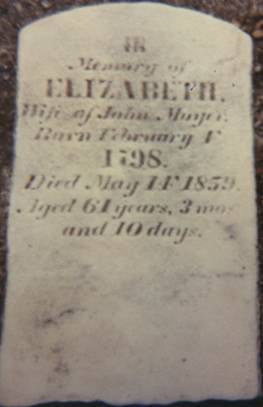 IN
Memory of
ELIZABETH.
Wife of John Moyer.
Born February 4'
1798.
Died May 14' 1859.
Aged 61 years, 3 mos
and 10 days.